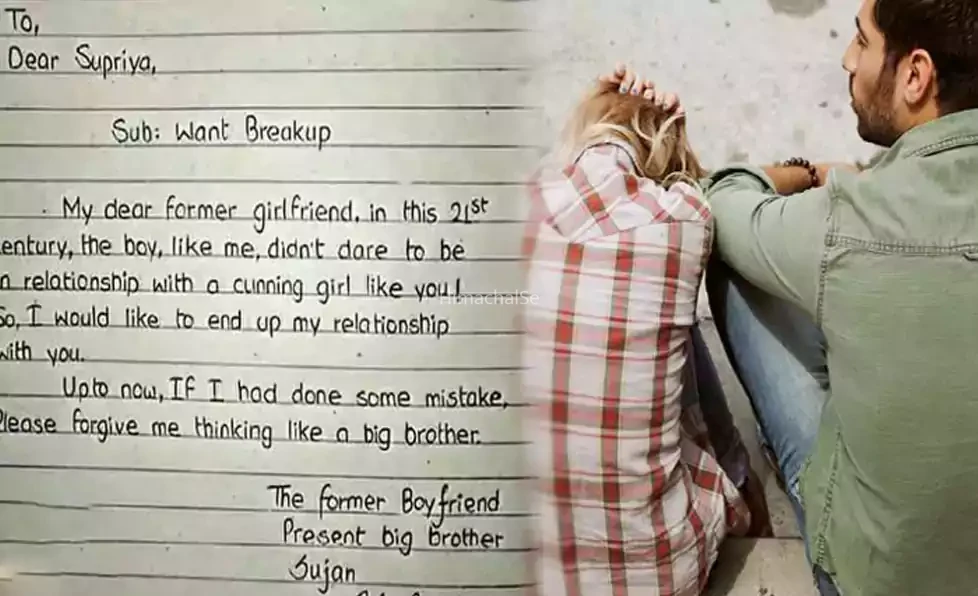 To,
Dear Supriya,
Sub: Want Breakup
My dear former girlfriend, in this 21st
entury, the boy, like me, didn't dare to be
n relationship with a cunning girl like you!
So, I would like to end up my relationship
with you.
Upto now, If I had done some mistake,
Please forgive me thinking like a big brother.
The former Boyfriend
Present big brother
Sujan